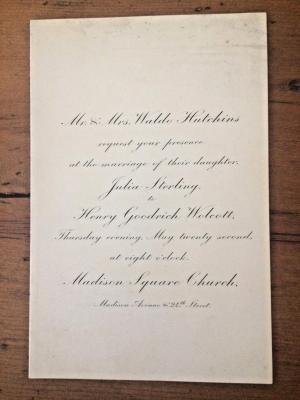 Mr. & Mrs. Waldo Hutchins
request your presence
at the marriage of their daughter,
Julia Sterling,
to
Henry Goodrich Wolcott,
Thursday evening, May twenty second,
at eight o'clock.
Madison Square Church,
Madison Avenue & 24th Street.